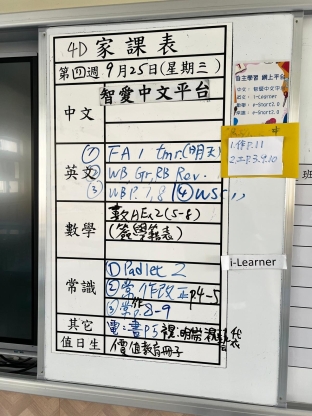 4D 家課表
第四週 9月25日(星期三)
智愛中文平台
中文
英文
① FA1 tmr.(明天)
② WB Gr, RB Rev.
③ WB P.7,8 ④ WS 1,
數學
數AEx2(5-8)
(簽學籍表)
常識
① Padlet 2
② 常作改正 P4-5
③ 常作P.8-9
其它
電:書P5
值日生
價值教育冊子
自主學習 網上平台
中文: 智愛中文平台
英文: i-Learner
數學: e-Smart2.0
常識: e-Smart2.0
1.作P.11
2.工P.3,9,10
i-Learner
班